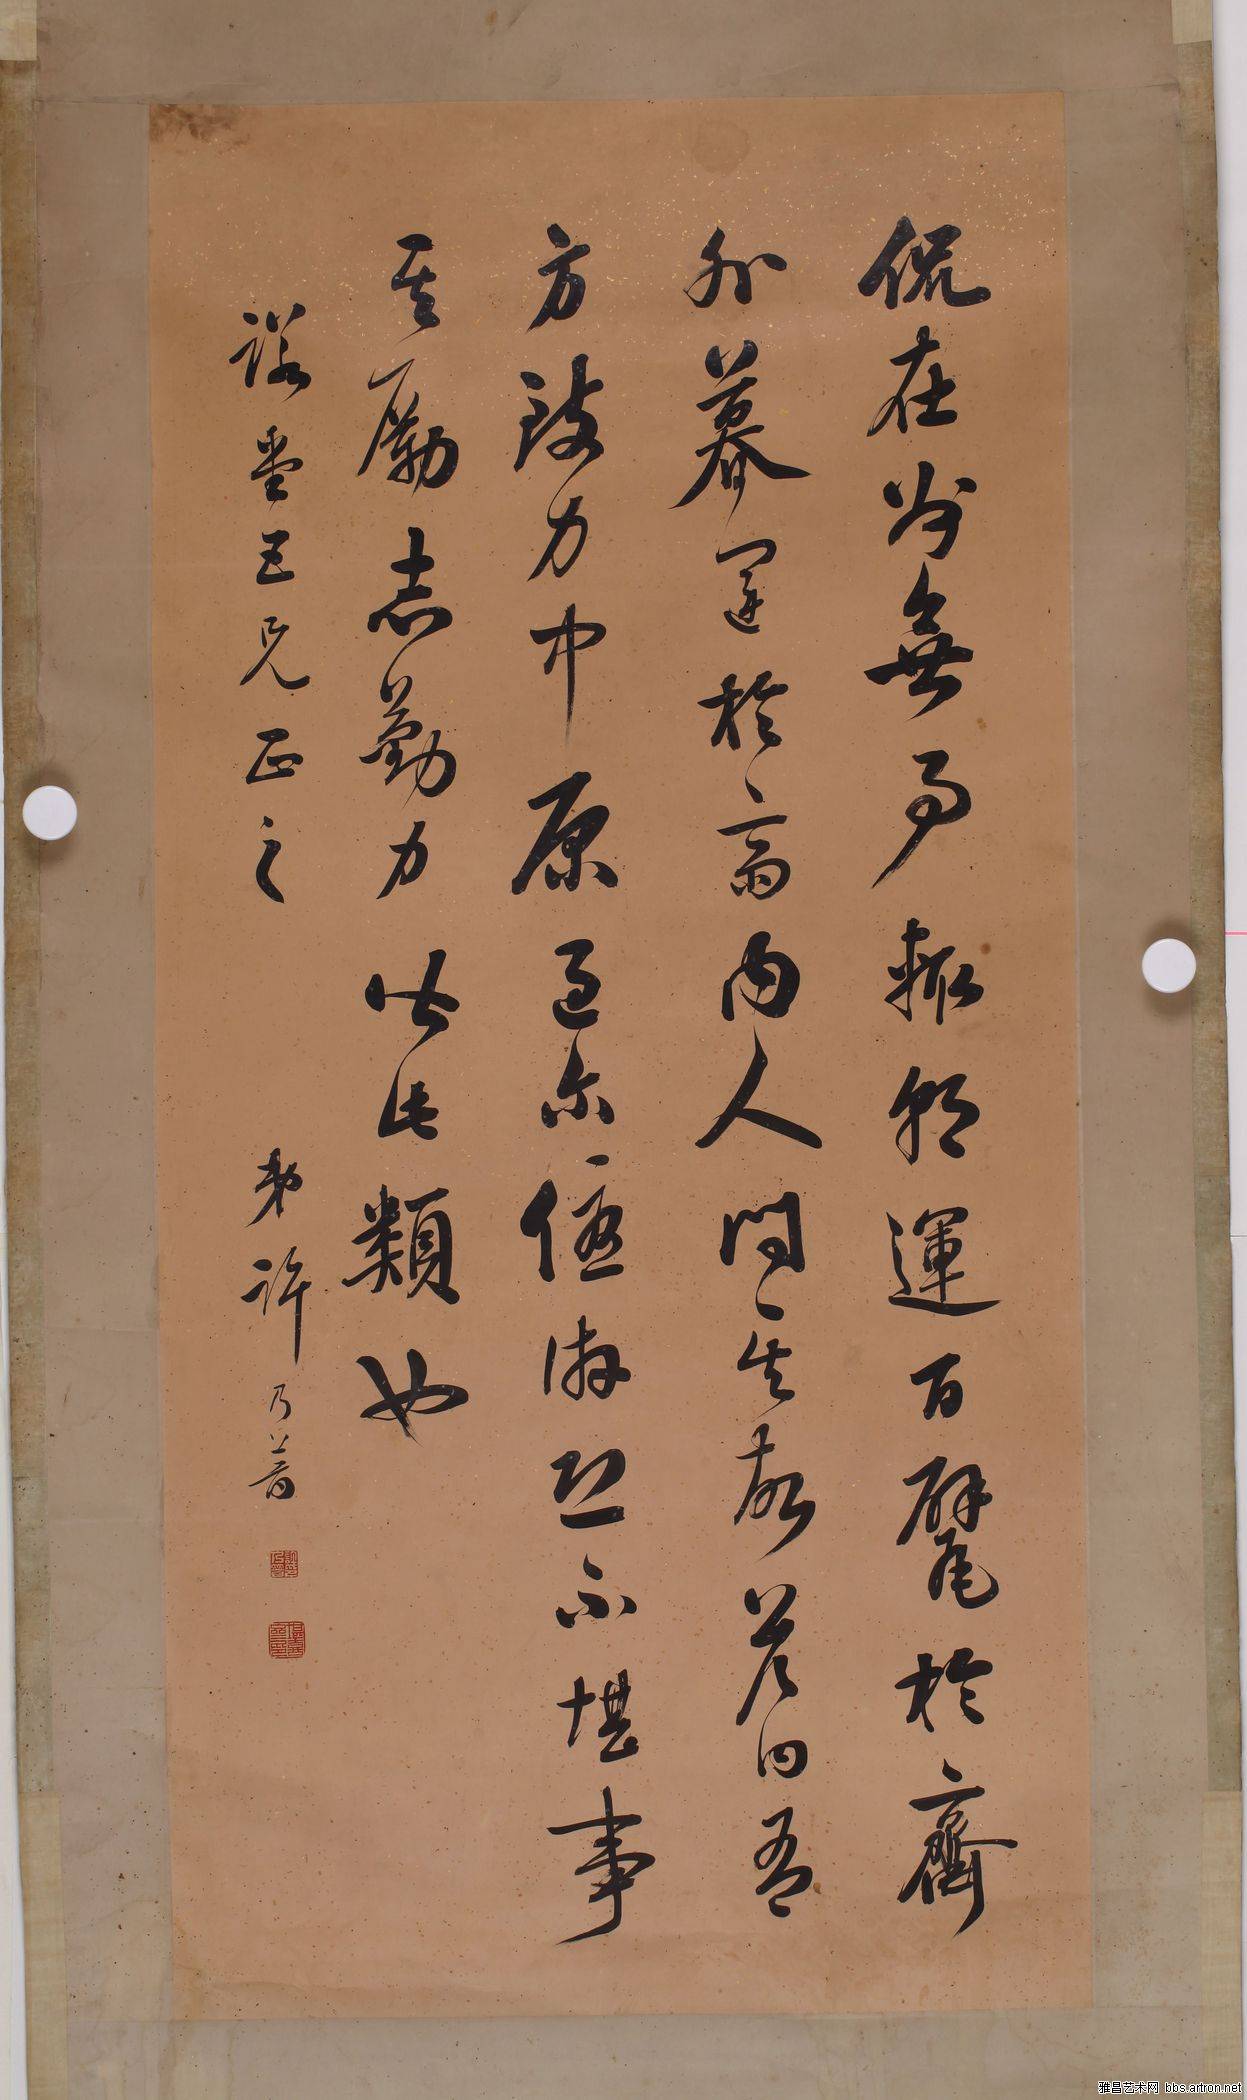 侃在州無事輒朝運百甓於齋
外暮運於齋內人問其故答曰吾
方致力中原過爾優游恐不堪事
其勵志勤力皆此類也
堂五兄正之
弟許乃普
雅昌艺术网 bbs.artron.net